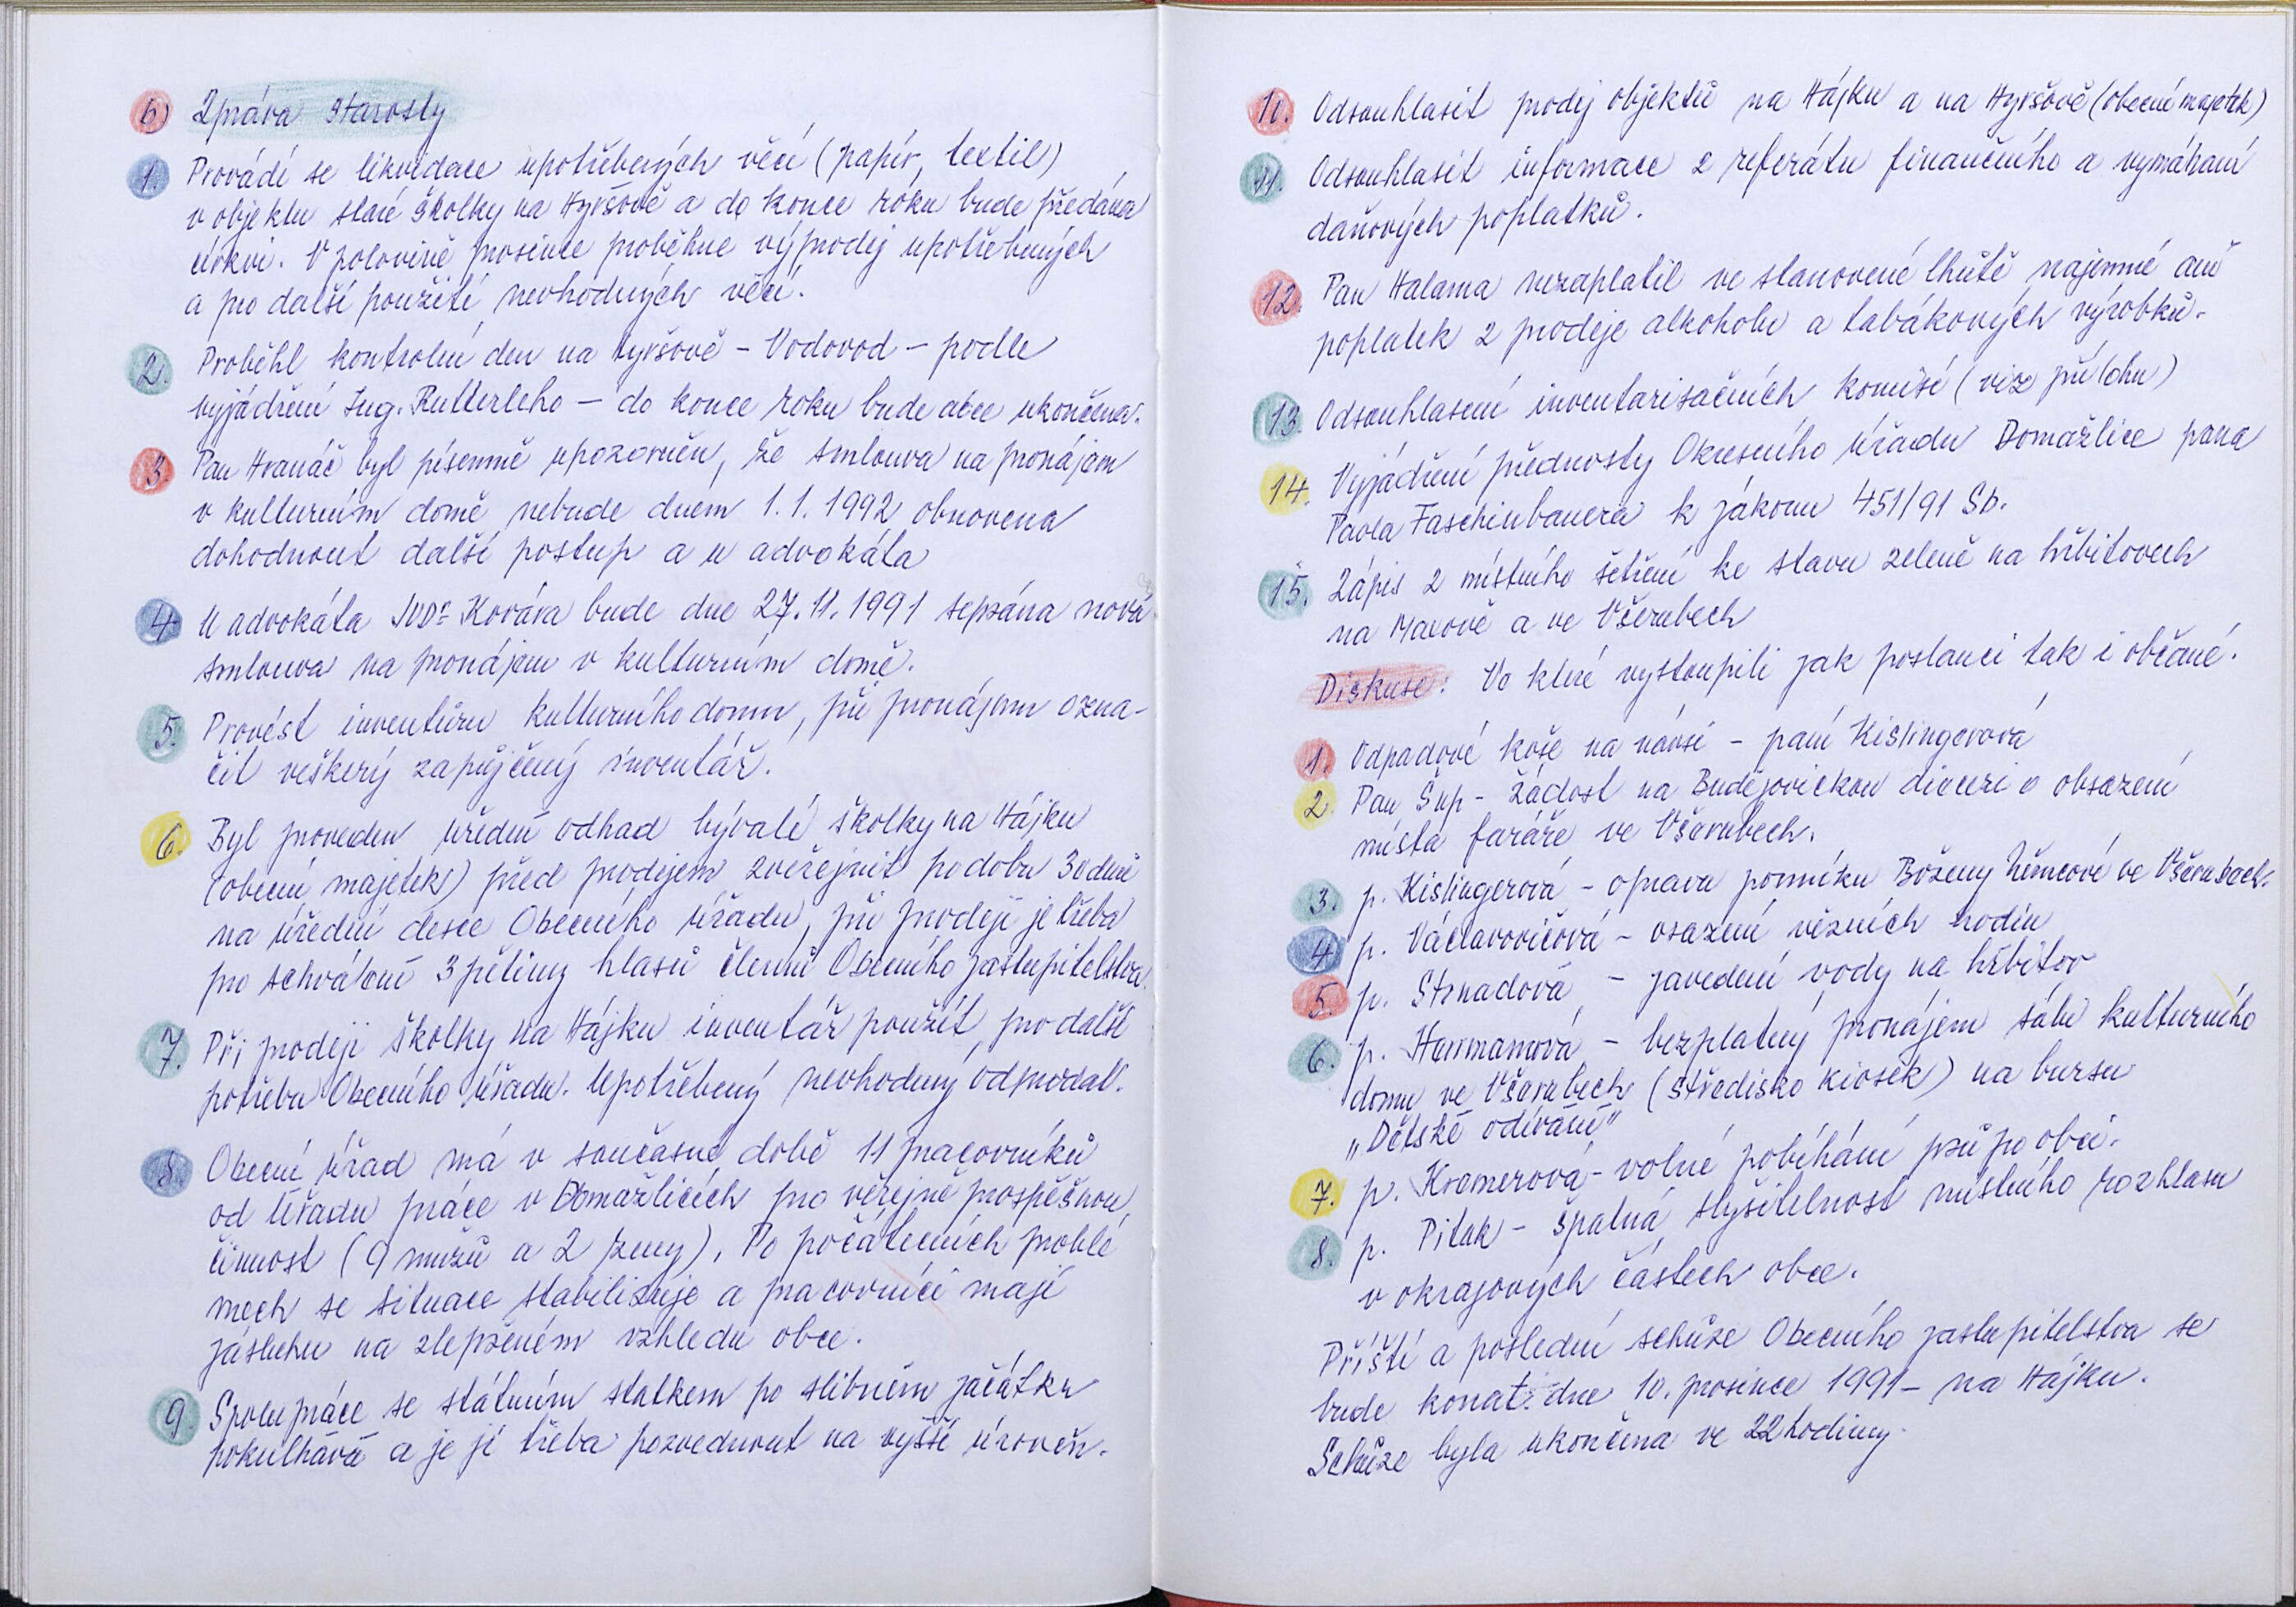 6) Zpráva starosty
1. Provádí se likvidace upotřebených věcí (papír, textil)
v objektu staré školky na Hyršově a do konce roku bude předána
církvi. V polovině prosince proběhne výprodej upotřebených
a pro další použití nevhodných věcí.
2. Proběhl kontrolní den na Hyršově - Vodovod - podle
vyjádření Ing. Rutterleho - do konce roku bude akce ukončena.
3. Pan Hranáč byl písemně upozorněn, že smlouva na pronájem
v kulturním domě nebude dnem 1.1.1992 obnovena
dohodnout další postup a u advokáta
4. U advokáta JUDr Kovára bude dne 27.11.1991 sepsána nová
smlouva na pronájem v kulturním domě.
5. Provést inventůru kulturního domu, při pronájmu ozna-
čit veškerý zapůjčený inventář.
6. Byl proveden úřední odhad bývalé školky na Hájku
(obecní majetek) před prodejem zveřejnit po dobu 30 dnů
na úřední desce Obecního úřadu, při prodeji je třeba
pro schválení 3 pětiny hlasů členů Obecního zastupitelstva.
7. Při prodeji školky na Hájku inventář použít pro další
potřebu Obecního úřadu. Upotřebený nevhodný odprodat.
8. Obecní úřad má v současné době 11 pracovníků
od úřadu práce v Domažlicích pro veřejně prospěšnou
činnost (9 mužů a 2 ženy). Po počátečních problé
mech se situace stabilizuje a pracovníci mají
zásluhu na zlepšeném vzhledu obce.
9. Spolupráce se státním statkem po slibném začátku
pokulhává a je jí třeba pozvednout na vyšší úroveň.
10. Odsouhlasit prodej objektů na Hájku a na Hyršově (obecní majetek)
11. Odsouhlasit informace z referátu finančního a vymáhání
daňových poplatků.
12. Pan Halama nezaplatil ve stanovené lhůtě nájemné ani
poplatek z prodeje alkoholu a tabákových výrobků.
13. Odsouhlasení inventarisačních komisí (viz příloha)
14. Vyjádření přednosty Okresního úřadu Domažlice pana
Pavla Faschinbauera k zákonu 451/91 Sb.
15. Zápis z místního šetření ke stavu zeleně na hřbitovech
na Maxově a ve Všerubech
Diskuse: Ve které vystoupili jak poslanci tak i občané.
1. Odpadové koše na návsi - paní Kislingerová
2. Pan Šup - žádost na Budějovickou diecezi o obsazení
místa faráře ve Všerubech.
3. p. Kislingerová - oprava pomníku Boženy Němcové ve Všerubech.
4. p. Václavovičová - osazení věžních hodin
5. p. Strnadová - zavedení vody na hřbitov
6. p. Herrmanová - bezplatný pronájem sálu kulturního
domu ve Všerubech (středisko kiosek) na bursu
„Dětské odívání"
7. p. Kramerová - volné pobíhání psů po obci.
8. p. Pitak - špatná slyšitelnost místního rozhlasu
v okrajových částech obce.
Příští a poslední schůze Obecního zastupitelstva se
bude konat dne 10. prosince 1991 - na Hájku.
Schůze byla ukončena ve 22 hodiny.